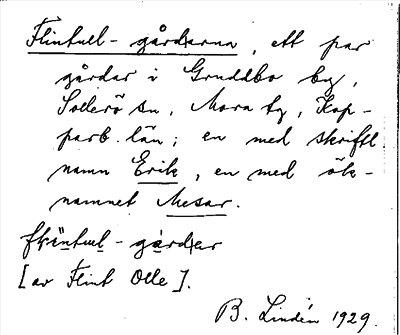 Flintull-gårdarna, ett par
gårdar i Gruddbo by,
Sollerö sn, Mora tg, Kop-
parb. län; en med skriftl.
namn Erik, en med ök-
namnet Mesar.
[av Flint Olle].
B. Lindén 1929.